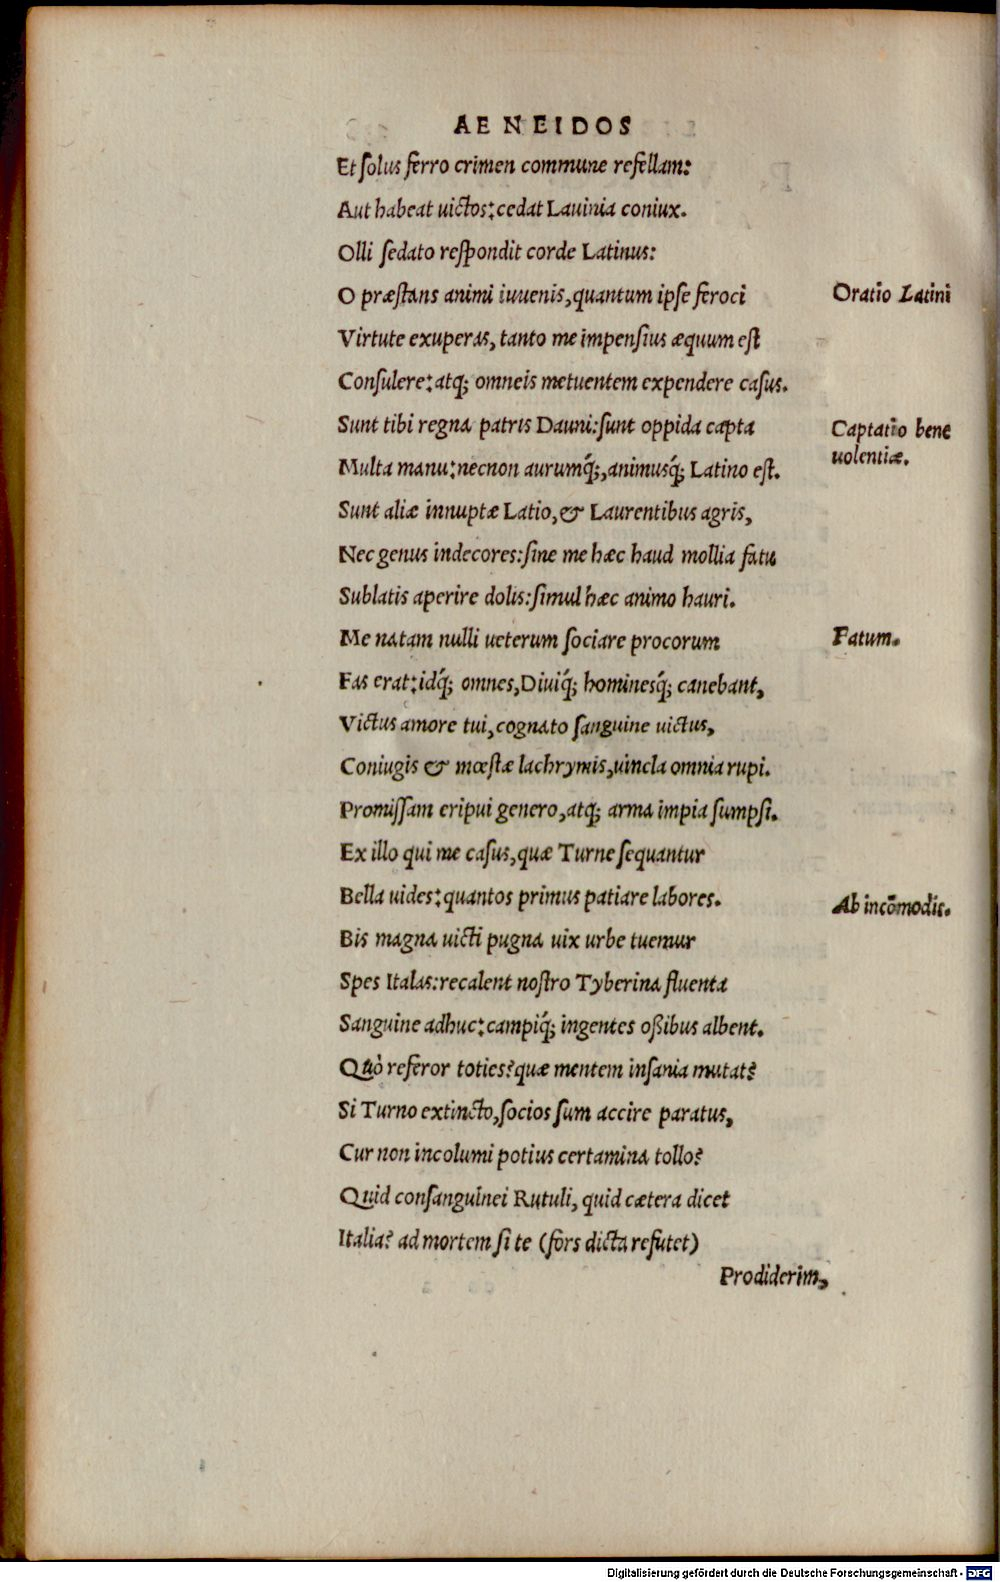 AENEIDOS
Et ſolus ferro crimen commune refellam:
Aut habeat uictos: cedat Lauinia coniux.
Olli ſedato reſpondit corde Latinus:
O præſtans animi iuuenis, quantum ipſe feroci
Oratio Latini
Virtute exuperas, tanto me impenſius æquum eſt
Conſulere: atq; omneis metuentem expendere caſus.
Sunt tibi regna patris Dauni: ſunt oppida capta
Captatio bene
uolentiæ.
Multa manu: necnon aurumq́;, animusq́; Latino eſt.
Sunt aliæ innuptæ Latio, & Laurentibus agris,
Nec genus indecores: ſine me hæc haud mollia fatu
Sublatis aperire dolis: ſimul hæc animo hauri.
Me natam nulli ueterum ſociare procorum
Fatum.
Fas erat: idq́; omnes, Diuiq́; hominesq́; canebant,
Victus amore tui, cognato ſanguine uictus,
Coniugis & mœſtæ lachrymis, uincla omnia rupi.
Promiſſam eripui genero, atq; arma impia ſumpſi.
Ex illo qui me caſus, quæ Turne ſequantur
Bella uides: quantos primus patiare labores.
Ab incōmodis.
Bis magna uicti pugna uix urbe tuemur
Spes Italas: recalent noſtro Tyberina fluenta
Sanguine adhuc: campiq́; ingentes oſſibus albent.
Quò referor toties? quæ mentem inſania mutat?
Si Turno extincto, ſocios ſum accire paratus,
Cur non incolumi potius certamina tollo?
Quid conſanguinei Rutuli, quid cætera dicet
Italia? ad mortem ſi te (fors dicta refutet)
Prodiderim,
Digitalisierung gefördert durch die Deutsche Forschungsgemeinschaft - DFG